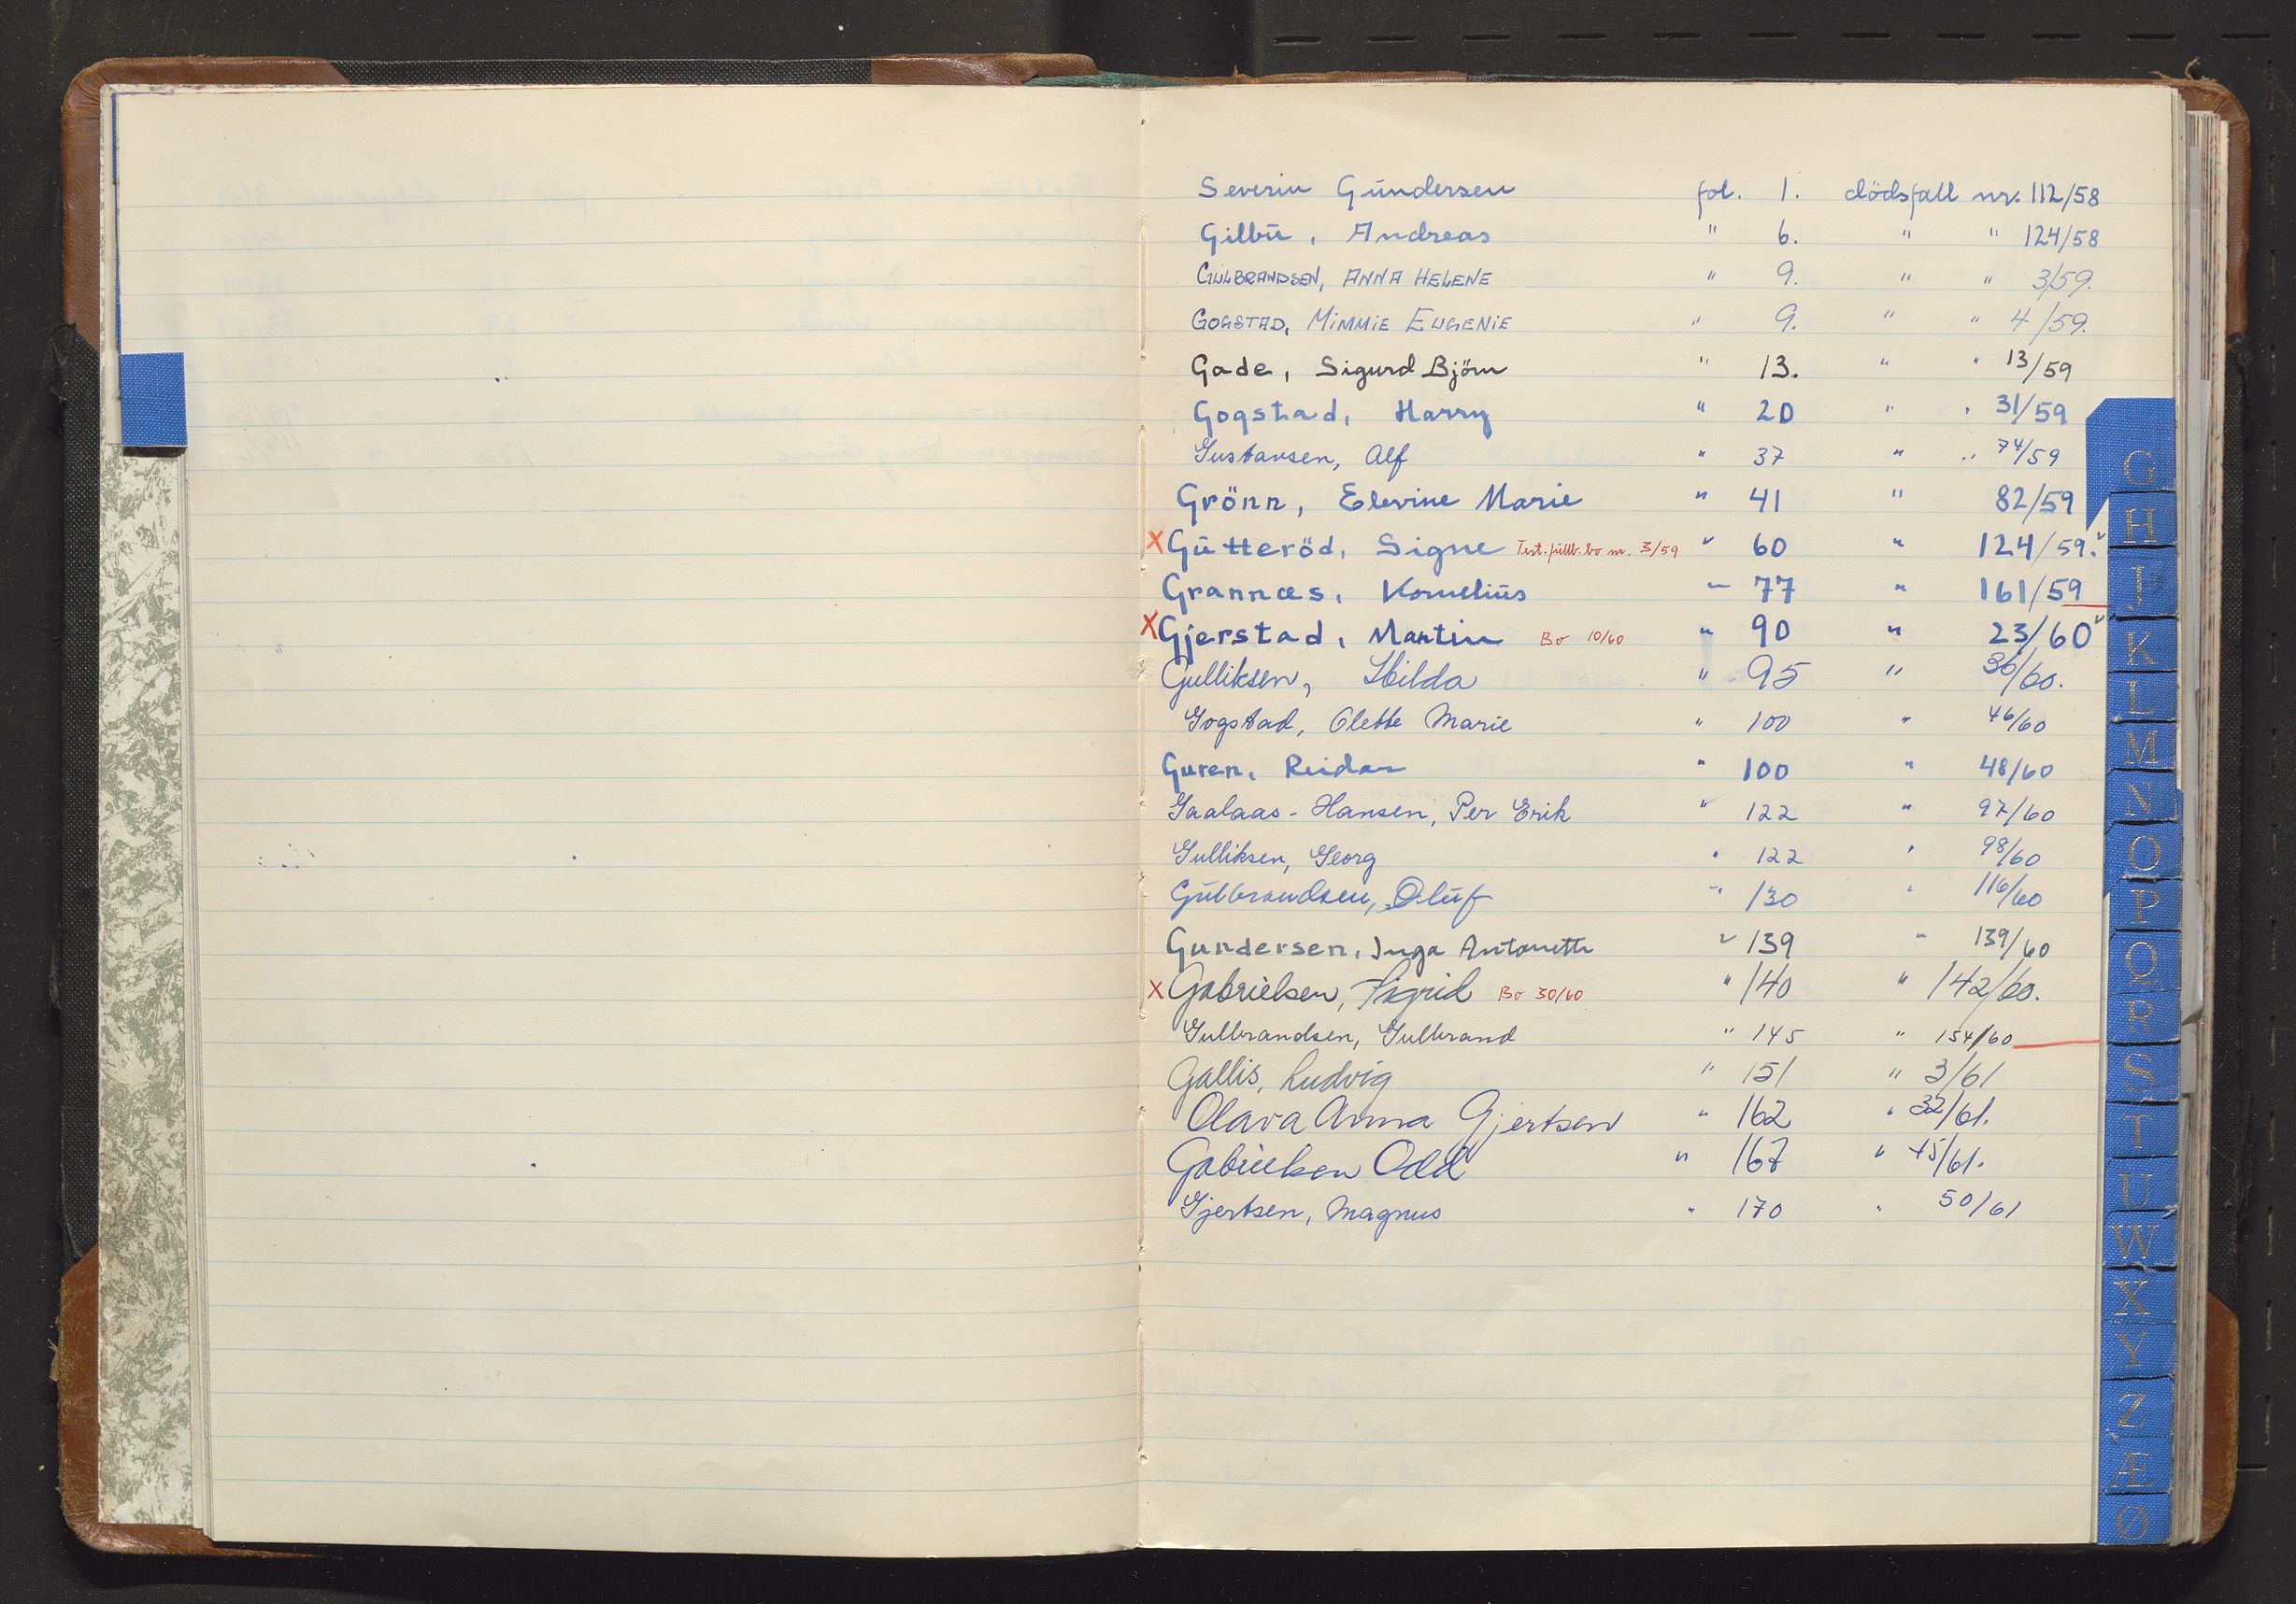 Severin Gundersen fol. 1. dödsfall nr. 112/58
Gilbu, Andreas " 6. " " 124/58
GULBRANDSEN, ANNA HELENE " 9. " " 3/59.
GOGSTAD, MIMMIE EUGENIE " 9. " " 4/59.
Gade, Sigurd Björn " 13. " " 13/59
Gogstad, Harry " 20 " " 31/59
Gustavsen, Alf " 37 " " 74/59
Grönn, Elevine Marie " 41 " 82/59
X Gutteröd, Signe Test.fullb.bo nr. 3/59 " 60 " 124/59.
Grannæs, Kornelius " 77 " 161/59
X Gjerstad, Martin Bo 10/60 " 90 " 23/60
Gulliksen, Hilda " 95 " 36/60.
Gogstad, Olette Marie " 100 " 46/60
Guren, Reidar " 100 " 48/60
Gaalaas-Hansen, Per Erik " 122 " 97/60
Gulliksen, Georg " 122 " 98/60
Gulbrandsen, Oluf " 130 " 116/60
Gundersen, Inga Antonette " 139 " 139/60
X Gabrielsen, Sigrid Bo 30/60 " 140 " 142/60.
Gulbrandsen, Gulbrand " 145 " 154/60
Gallis, Ludvig " 151 " 3/61
Olava Anna Gjertsen " 162 " 32/61.
Gabrielsen Odd " 167 " 45/61.
Gjertsen, Magnus " 170 " 50/61
G
H
J
K
L
M
N
O
P
Q
R
S
T
U
W
X
Y
Z
Æ
Ø